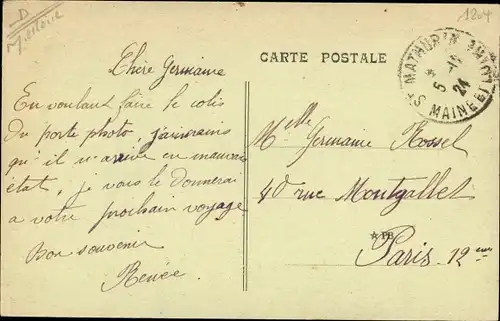 1204
CARTE POSTALE
St MATHURIN
5 - 11
24
MAINE ET
Chère Germaine
En voulant faire le colis
du porte photo, j'aurais
qu'il n'arrive en mauvais
état, je vous le donnerai
a votre prochain voyage
Bon souvenir
Renée
Melle Germaine Rossel
40 rue Montgallet
★ PB
Paris 12eme